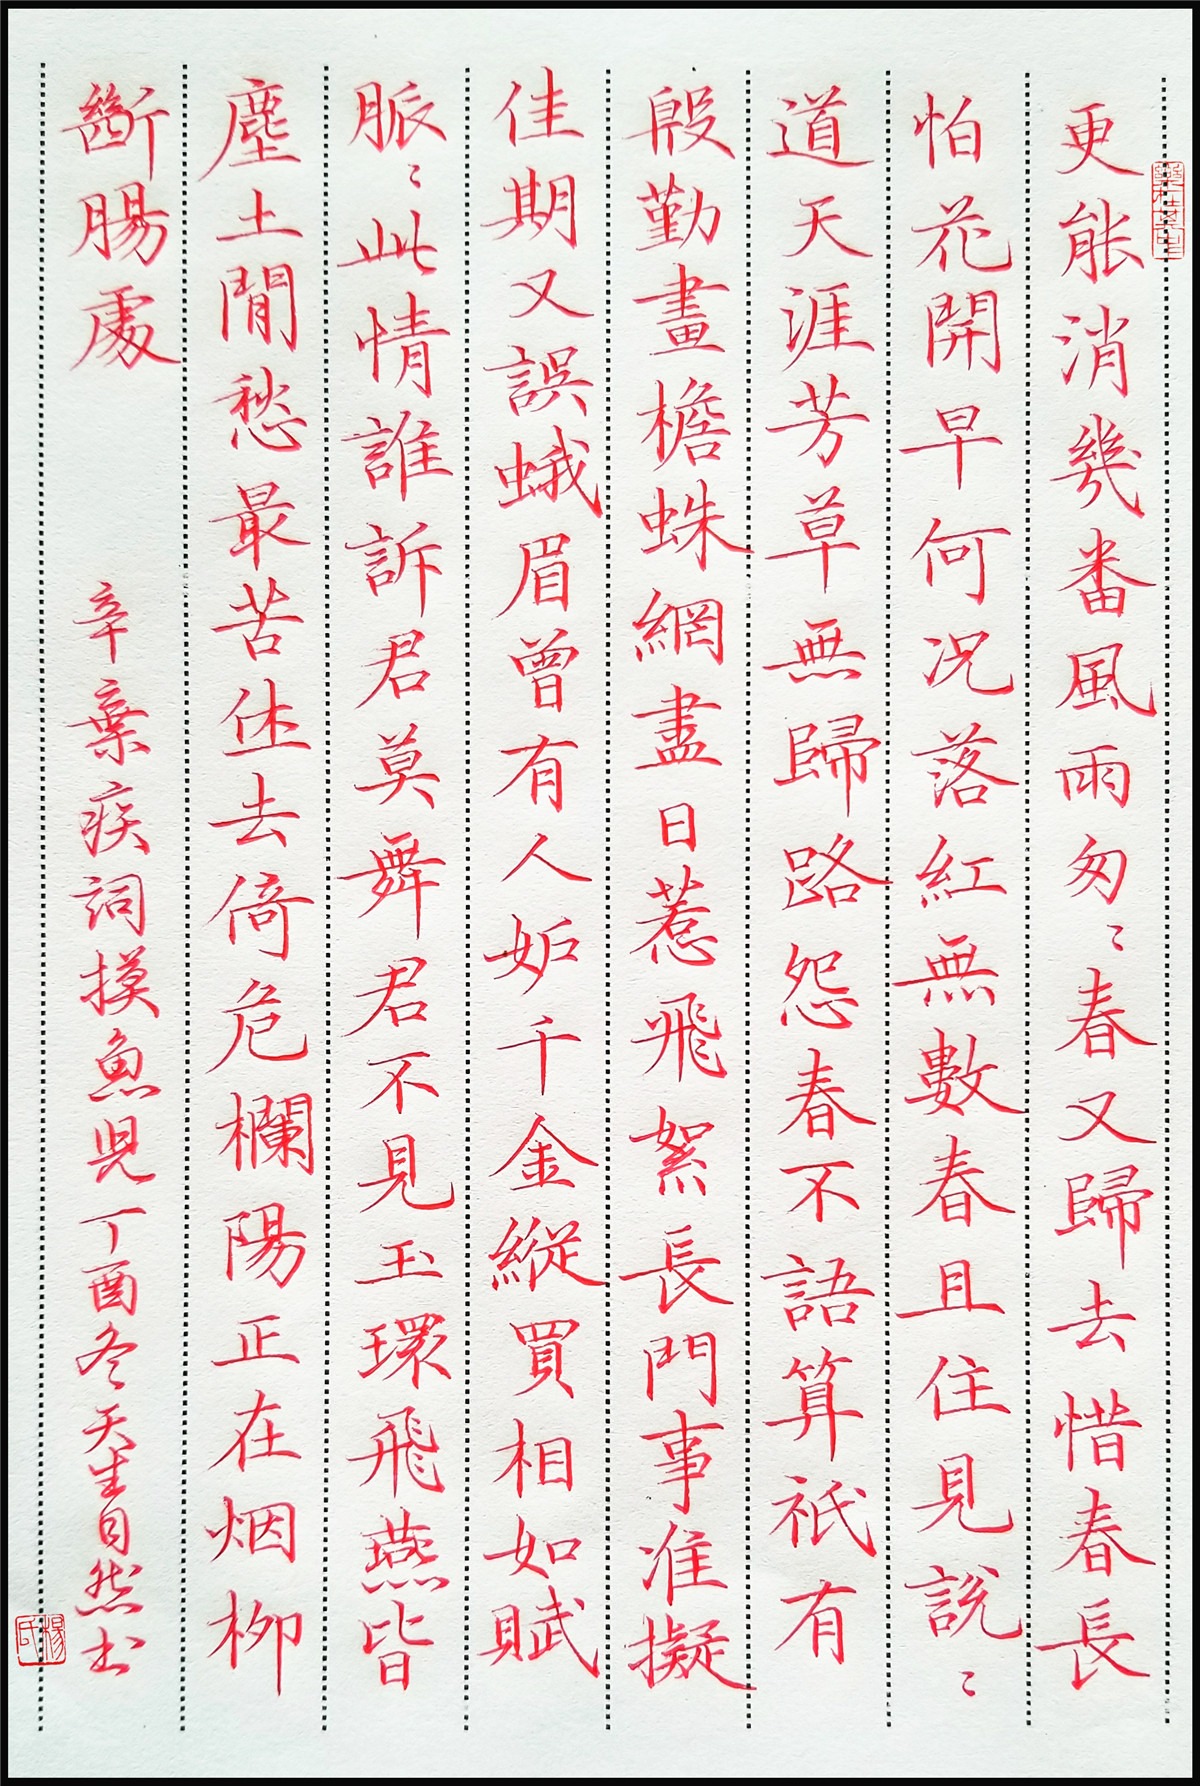 更能消幾番風雨匆〻春又歸去惜春長
怕花開早何况落紅無數春且住見説〻
道天涯芳草無歸路怨春不語算祇有
殷勤畫檐蛛網盡日惹飛絮長門事准擬
佳期又誤蛾眉曾有人妬千金縱買相如賦
脈〻此情誰訴君莫舞君不見玉環飛燕皆
塵土閒愁最苦休去倚危欄陽正在烟柳
斷腸處
辛棄疾詞摸魚児丁酉冬天生自然書
楊氏